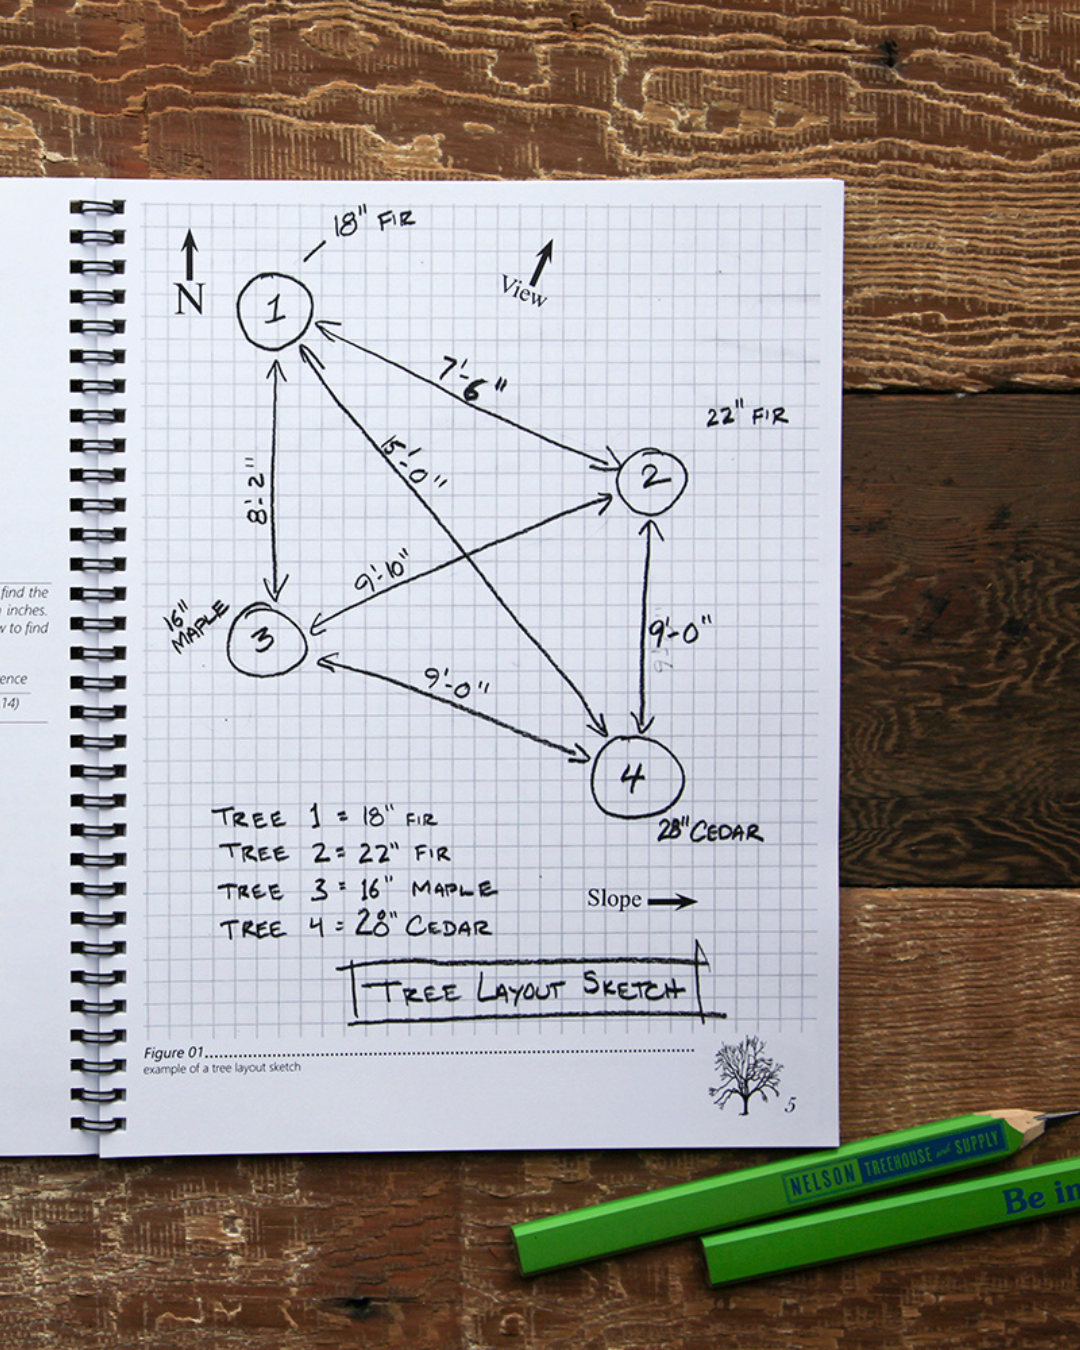 18" FIR
N
1
View
7'-6"
22" FIR
15'-0"
2
8'-2"
9'-10"
find the
inches.
w to find
16"
MAPLE
3
9'-0"
9'-0"
ence
14)
4
TREE 1 = 18" FIR
28" CEDAR
TREE 2 = 22" FIR
TREE 3 = 16" MAPLE
Slope
TREE 4 = 28" CEDAR
TREE LAYOUT SKETCH
Figure 01
example of a tree layout sketch
5
NELSON TREEHOUSE and SUPPLY
Be in